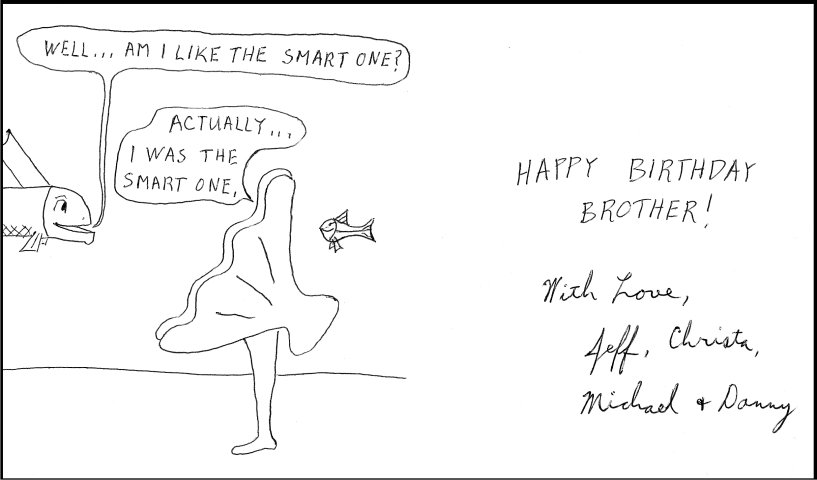 WELL... AM I LIKE THE SMART ONE?
ACTUALLY...
I WAS THE
SMART ONE.
HAPPY BIRTHDAY
BROTHER!
With Love,
Jeff, Christa,
Michael + Danny